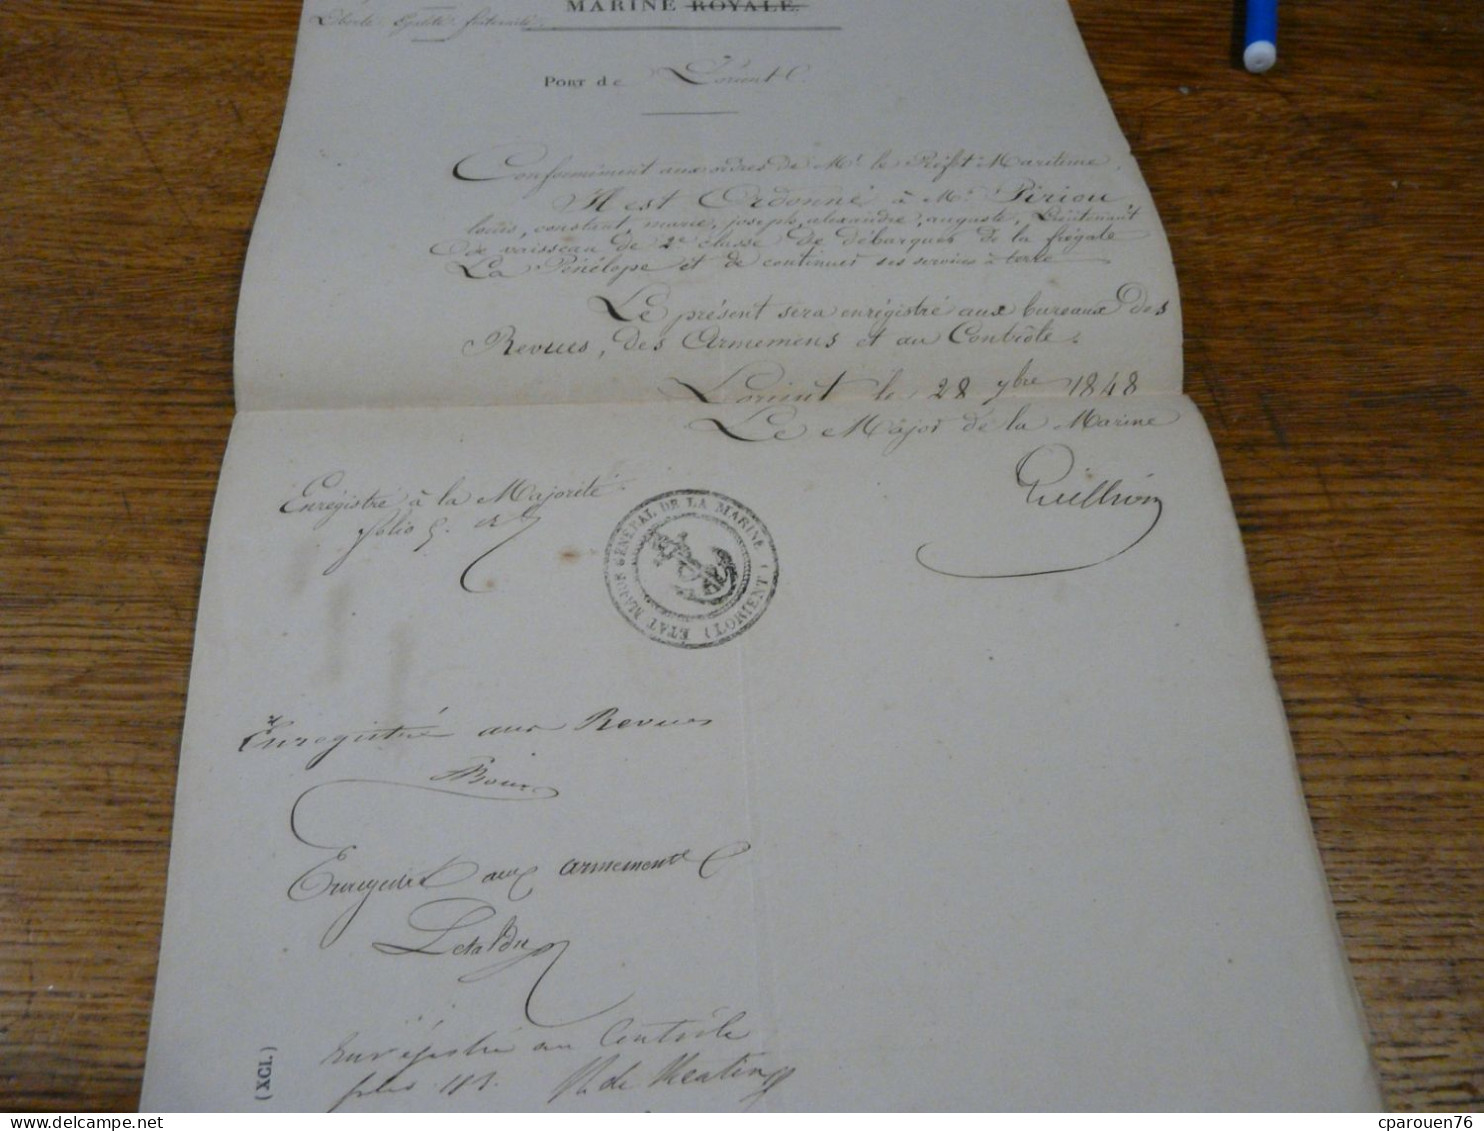 MARINE ROYALE.
Liberté égalité fraternité.
PORT de Lorient.
Conformément aux ordres de Mr. le Préfet Maritime,
Il est Ordonné à Mr. Piriou,
louis, constant, marie, joseph, alexandre, auguste, Lieutenant
de vaisseau de 2e classe de débarquer de la frégate
La Pénélope et de continuer ses services à terre
Le présent sera enrégistré aux bureaux des
Revues, des Armemens et au Contrôle.
Lorient le 28 9bre 1848
Le Major de la Marine
Enrégistré à la Majorité
folio
ÉTAT MAJOR GÉNÉRAL DE LA MARINE (LORIENT)
Enregistré aux Revues
Enregistré aux armements
Enrégistré au Contrôle
folio
(XCI.)
cparouen76